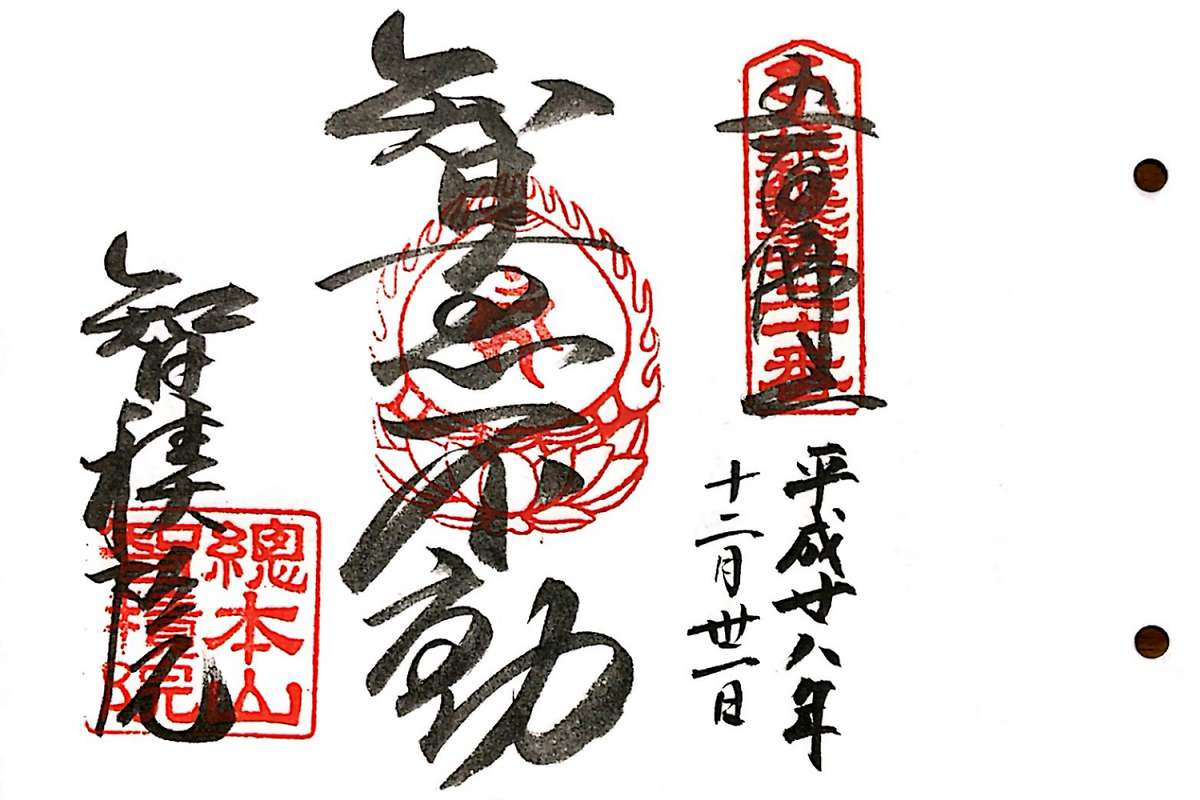 五百佛山
平成廿八年
十二月丗一日
智恵不動
智積院
總本山
智積院